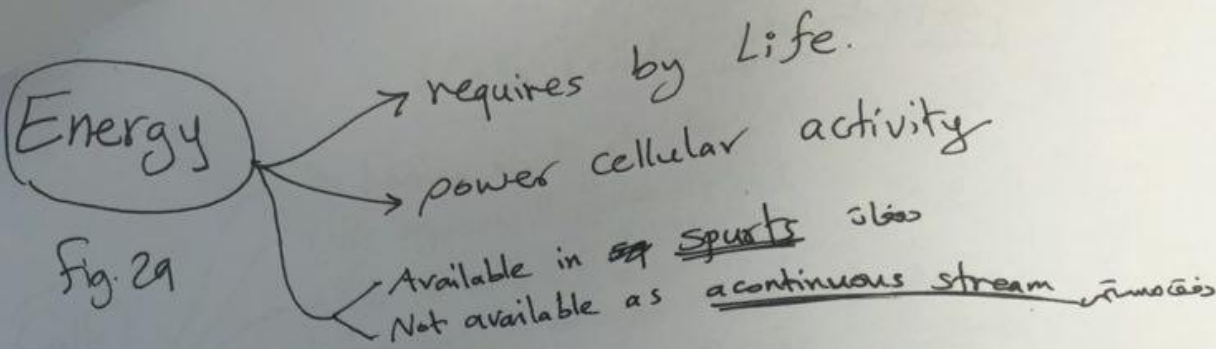 Energy
requires by Life.
power cellular activity
Available in spurts دفعات
Not available as acontinuous stream دفق مستمر
fig. 2a